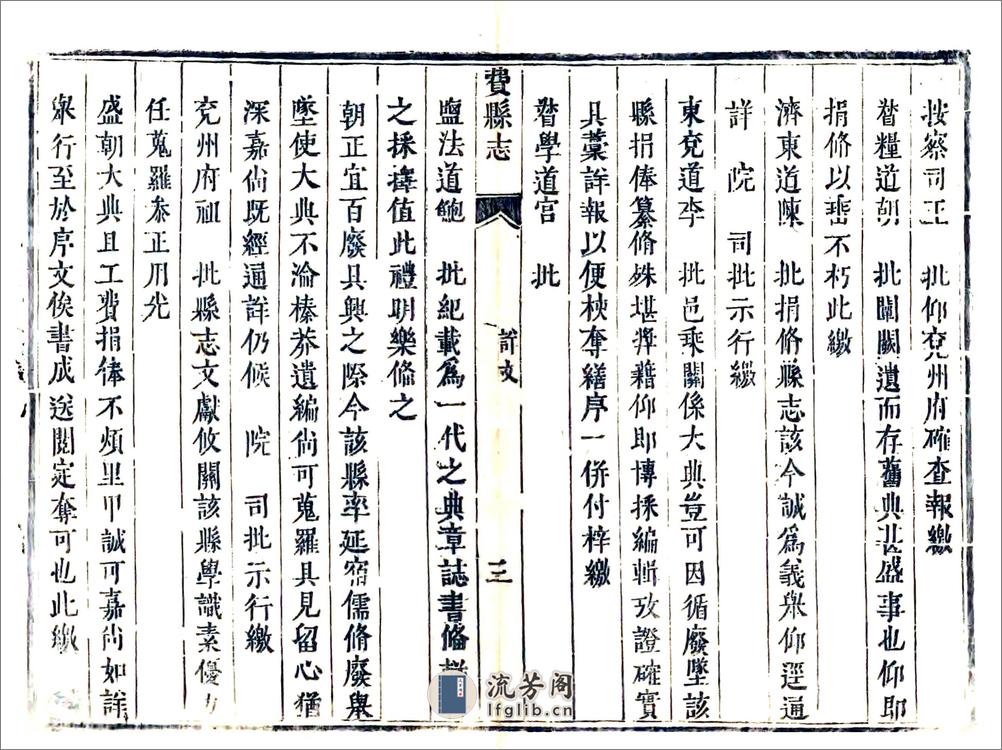 按察司王　批仰兗州府確查報繳
督糧道胡　批闡闕遺而存舊典甚盛事也仰即
捐俻以埀不朽此繳
濟東道陳　批捐脩縣志該令誠爲義舉仰逕通
詳　院　司批示行繳
東兗道李　批邑乘關係大典豈可因循廢墜該
縣捐俸纂脩殊堪奬藉仰即博採編輯攷證確實
具藁詳報以便核奪繕序一併付梓繳
督學道宫　批
費縣志　詳文　三
鹽法道鮑　批紀載爲一代之典章誌書俻
之採擇值此禮明樂俻之
朝正宜百廢具興之際今該縣率延宿儒脩廢舉
墜使大典不淪榛莽遺編尙可蒐羅具見留心猶
深嘉尙既經通詳仍候　院　司批示行繳
兗州府祖　批縣志文獻攸關該縣學識素優力
任蒐羅叅正用光
盛朝大典且工費捐俸不煩里甲誠可嘉尙如詳
舉行至於序文俟書成送閱定奪可也此繳
流芳阁
lfglib.cn